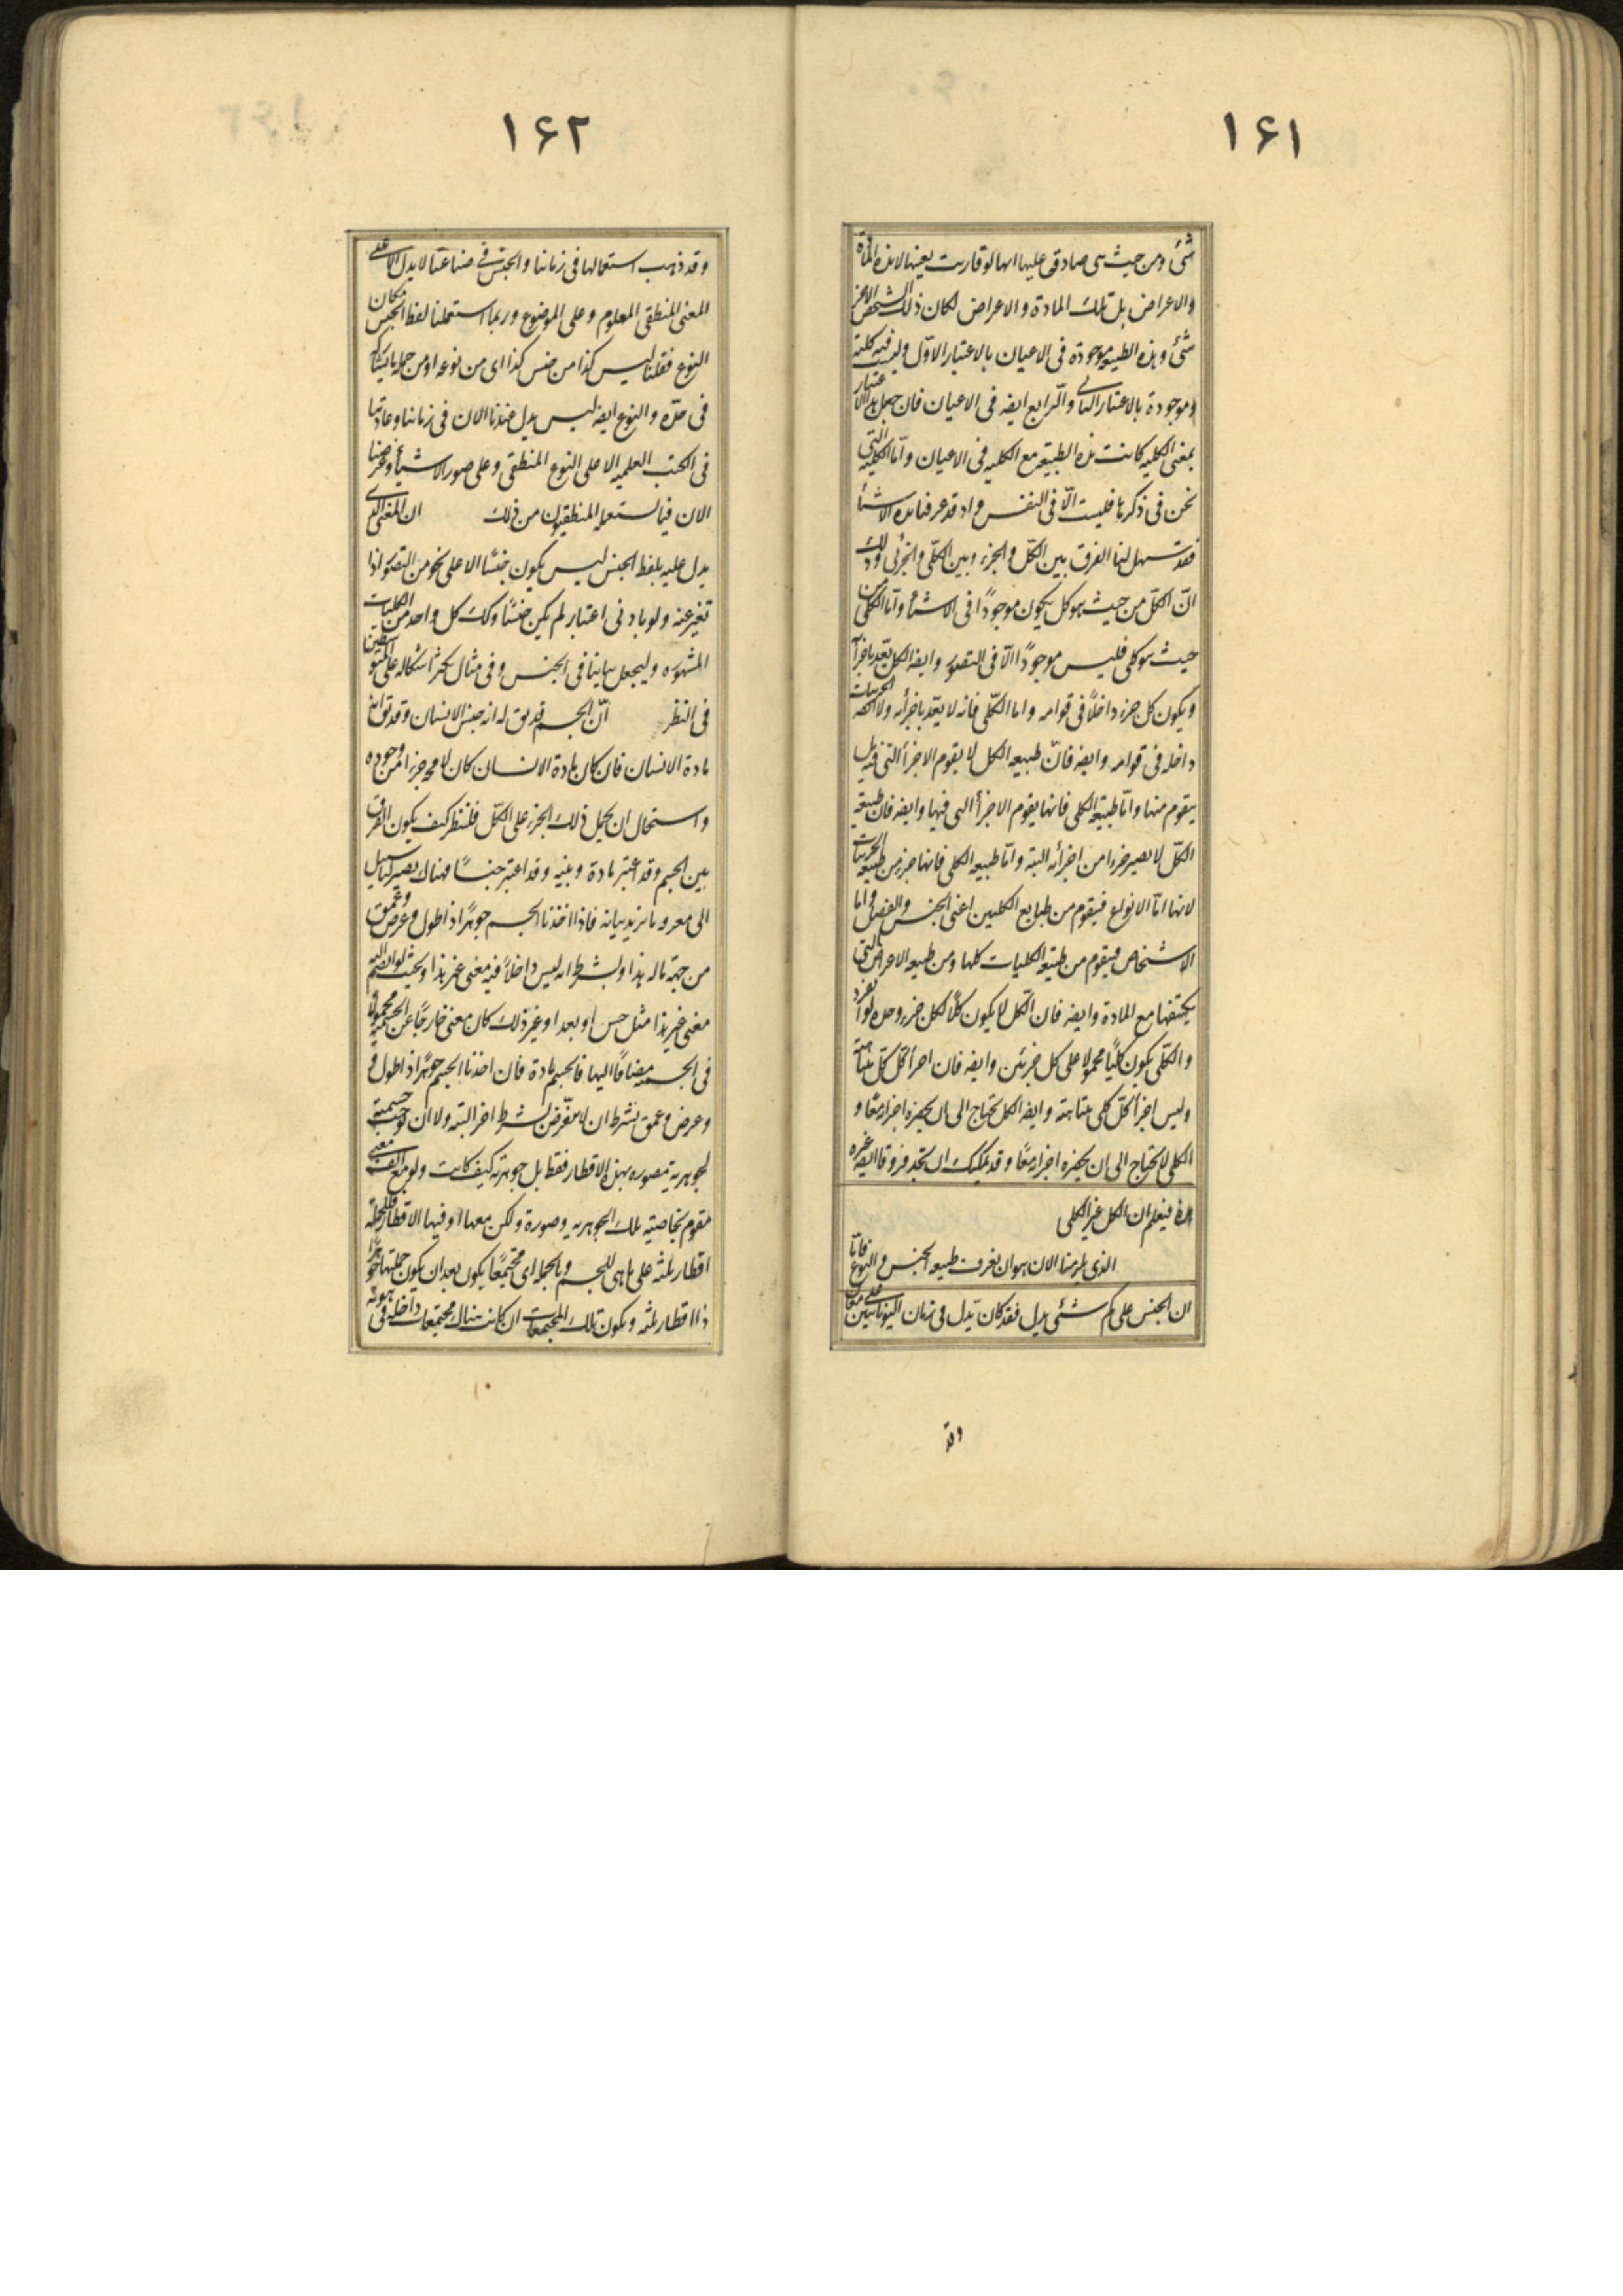 ١۶١
شئ ومن حيث هى صادق عليها انها لو قارنت بعينها لا بهذه المادة
والاعراض بل بتلك المادة والاعراض لكان ذلك الشخص الاخر
شئ وهذه الطبيعة موجودة فى الاعيان بالاعتبار الاوّل وليست فيه كلية
وموجودة بالاعتبار الثانى والرّابع ايضه فى الاعيان فان جعل هذا الاعتبار
بمعنى الكليه كانت هذه الطبيعة مع الكليه فى الاعيان وامّا الكليّه التى
نحن فى ذكرها فليست الّا فى النفس واذ قد عرفنا هذه الاشيأ
فقد تسهل لنا الفرق بين الكلّ والجزء وبين الكلّى والجزئى وذلك
انّ الكلّ من حيث هو كل يكون موجودًا فى الاشيأ وامّا الكلى من
حيث هو كلى فليس موجودًا الّا فى التصور وايضه الكل يعّد باجزأئه
ويكون كل جزء داخلًا فى قوامه واما الكلّى فانه لا يعّد باجزأئه ولا الجزئيات
داخله فى قوامه وايضه فانّ طبيعه الكل لا يقوم الاجزأ التى فيه بل
يتقوم منها وامّا طبيعة الكلى فانها يقوم الاجزأ التى فيها وايضه فان طبيعة
الكلّ لا يصير جزءا من اجزأئه البتة وامّا طبيعه الكلى فانها جزء من طبيعة الجزئيات
لانها امّا الانواع فيتقوم من طبايع الكليين اعنى الجنس والفصل واما
الاشخاص فيتقوم من طبيعة الكليات كلها ومن طبيعه الاعراض التى
يكتنفها مع المادة وايضه فان الكّل لا يكون كلًا لكل جزء وحده لو انفرد
والكلّى يكون كليًا محمولا على كل جزئى وايضه فان اجزأ كل كلّ متناهية
وليس اجزأ كلّ كلى متناهية وايضه الكل يحتاج الى ان يحضره اجزاؤه معًا و
الكلى لا يحتاج الى ان يحضره اجزاؤه معًا وقد يمكنك ان تجد فروقا ايضه غيره
هذه فيعلم ان الكل غير الكلى
الذى يلزمنا الان هو ان نعرف طبيعه الجنس والنوع فامّا
ان الجنس على كم شئى يدل فقد كان يدل فى زمان اليونانيين على معان
وقد
١۶٢
وقد ذهب استعمالها فى زماننا والجنس فى صناعتنا لا يدل الا على
المعنى المنطقى المعلوم وعلى الموضوع وربما استعملنا لفظ الجنس مكان
النوع فقلنا ليس كذا من جنس كذا اى من نوعه او من جملة ما يشاركه
فى حدّه والنوع ايضه ليس يدل عندنا الان فى زماننا وعادتنا
فى الكتب العلميه الا على النوع المنطقى وعلى صور الاشيأ وغرضنا
الان فيما يستعمله المنطقيون من ذلك ان المعنى الذى
يدل عليه بلفظ الجنس ليس يكون جنسًا الا على نحو من التصور اذا
تغير عنه ولو بادنى اعتبار لم يكن جنسًا وكذلك كل واحد من الكليات
المشهوره وليجعل بياننا فى الجنس وفى مثال يكثر اشكاله على المتوسطين
فى النظر انّ الجسم قد يق له انه جنس الانسان وقد يق انه
مادة الانسان فان كان مادة الانسان كان لا محه جزءا من وجوده
واستحال ان يحمل ذلك الجزء على الكلّ فلننظر كيف يكون الفرق
بين الجسم وقد اعتبر مادة وبينه وقد اعتبر جنسًا فهناك يصير لنا سبيل
الى معرفه ما نريد بيانه فاذا اخذنا الجسم جوهرًا ذا طول وعرض وعمق
من جهة ما له هذا وبشرط انه ليس داخلًا فيه معنى غير هذا وبحيث لو انضم اليه
معنى غير هذا مثل حس او بعد او غير ذلك كان معنى خارجًا عن الجسميه محمولا
فى الجسميه مضافًا اليها فالجسم مادة فان اخذنا الجسم جوهرًا ذا طول
وعرض وعمق بشرط ان لا يتعّرض لشرط اخر البته ولا ان توجب جسميته
لجوهريه متصوره بهذه الاقطار فقط بل جوهريه كيف كانت ولو مع الف معنى
مقوم بخاصيته تلك الجوهريه وصورة ولكن معها او فيها الاقطار فللجمله
اقطار ثلثه على ما هى للجسم وبالجملة اى مجتمعًا يكون بعد ان يكون جملتها جوهرًا
ذا اقطار ثلثه ويكون تلك المجتمعات ان كانت هناك مجتمعات داخله فى هويّه